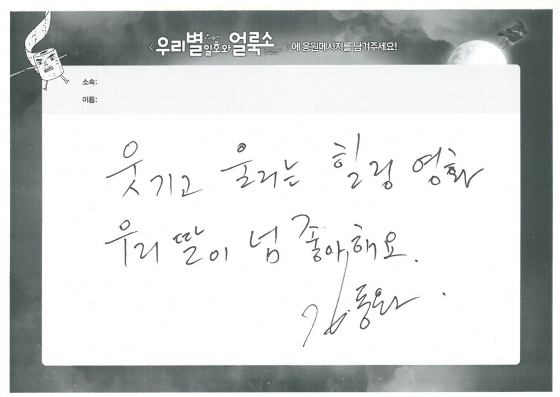 <우리별 일호와 얼룩소>에 응원메시지를 남겨주세요!
소속:
이름:
웃기고 울리는 힐링 영화
우리 딸이 넘 좋아해요.